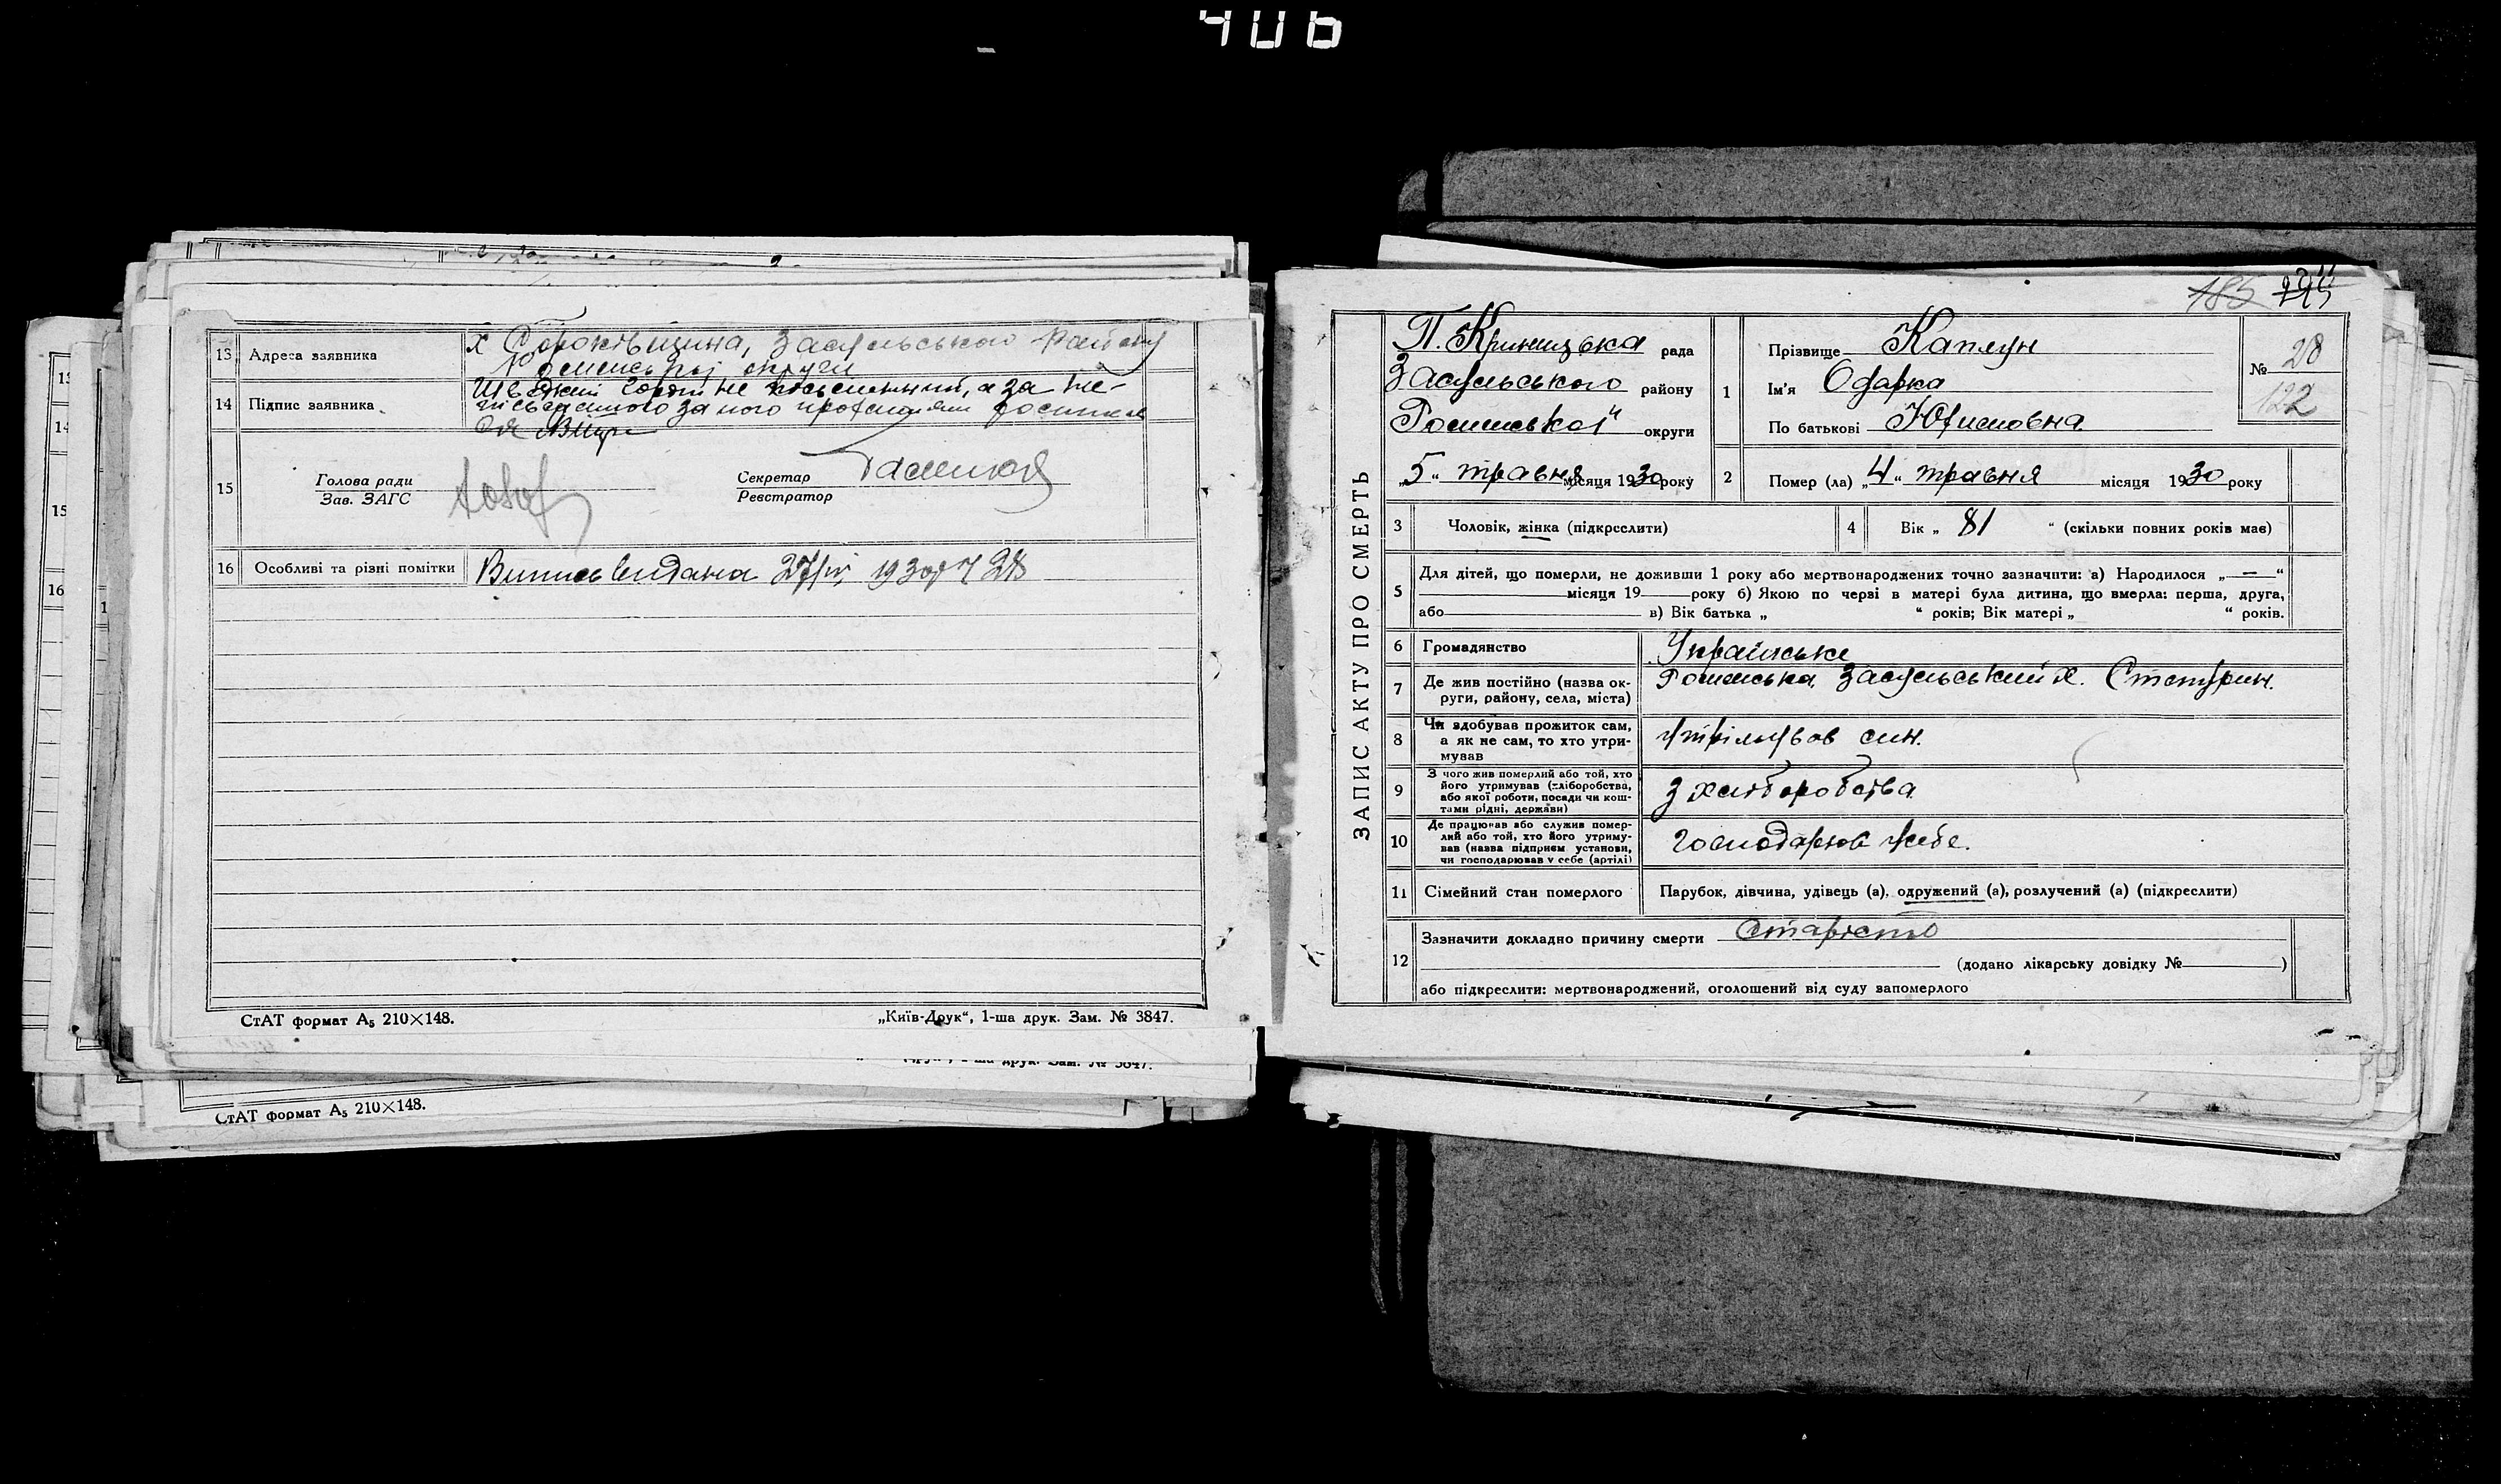 406
13 Адреса заявника х Сороківщина, Засульського Району
Роменської округи
14 Підпис заявника не письменний, а за не-
письменного за його проханням росписався
15 Голова ради
Зав. ЗАГС
Секретар
Реєстратор
16 Особливі та різні помітки Випись видана 27/IV 1930р № 28
СтАТ формат А₅ 210×148.
„Київ-Друк“, 1-ша друк. Зам. № 3847.
СтАТ формат А₅ 210×148.
185
ЗАПИС АКТУ ПРО СМЕРТЬ
П. Криницька рада
Засульського району
Роменської округи
„5“ травня місяця 1930 року
1 Прізвище Каплун
Ім'я Одарка
По батькові Юхимовна
№ 28
122
2 Помер (ла) „4“ травня місяця 1930 року
3 Чоловік, жінка (підкреслити)
4 Вік „ 81 “ (скільки повних років має)
5 Для дітей, що померли, не доживши 1 року або мертвонароджених точно зазначити: а) Народилося „ — “
місяця 19 року б) Якою по черзі в матері була дитина, що вмерла: перша, друга,
або в) Вік батька „ “ років; Вік матері „ “ років.
6 Громадянство Українське
7 Де жив постійно (назва ок-
руги, району, села, міста) Роменська, Засульський х.
8 Чи здобував прожиток сам,
а як не сам, то хто утри-
мував утрімував син.
9 З чого жив померлий або той, хто
його утримував (хліборобства,
або якої роботи, посади чи кош-
тами рідні, держави) З хліборобства
10 Де працював або служив помер-
лий або той, хто його утриму-
вав (назва підприєм установи,
чи господарював у себе (артілі) господарював у себе.
11 Сімейний стан померлого Парубок, дівчина, удівець (а), одружений (а), розлучений (а) (підкреслити)
12 Зазначити докладно причину смерти старість
(додано лікарську довідку № )
або підкреслити: мертвонароджений, оголошений від суду запомерлого